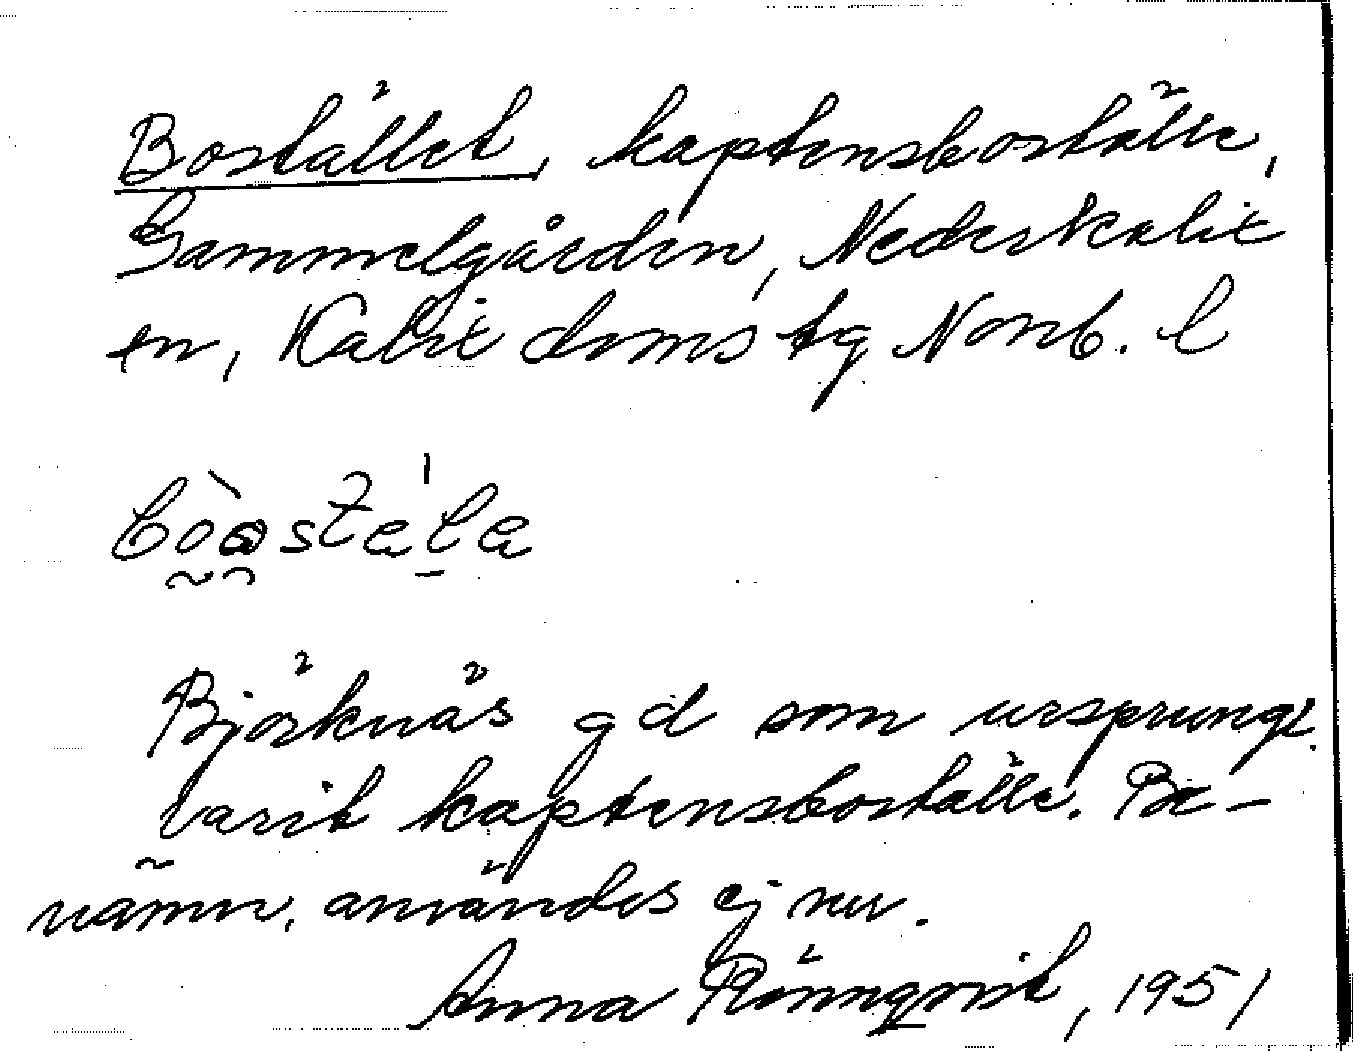 Bostället, kaptensboställe,
Gammelgården, Nederkalix
sn, Kalix doms tg Norrb. l
bòǝstɛ́la
Björknäs gd som ursprungl.
varit kaptensboställe. Be-
nämn. användes ej nu.
Anna Rönnqvist, 1951